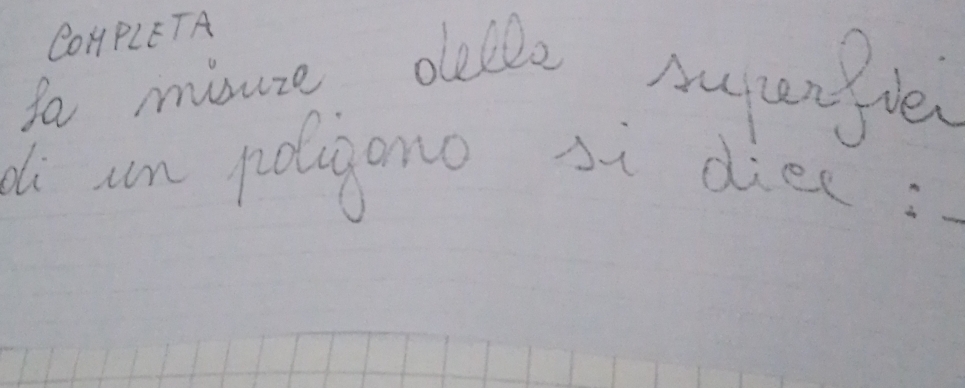 COMPLETA
La misura della superfici
di un poligono si dice :_